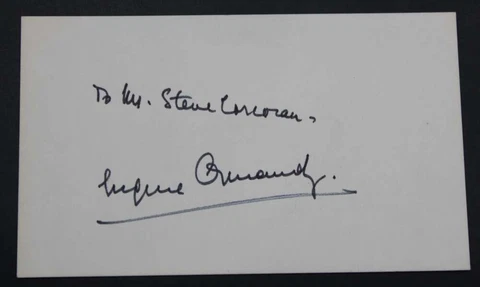 To Mr. Steve Corcoran,
Eugene Ormandy.